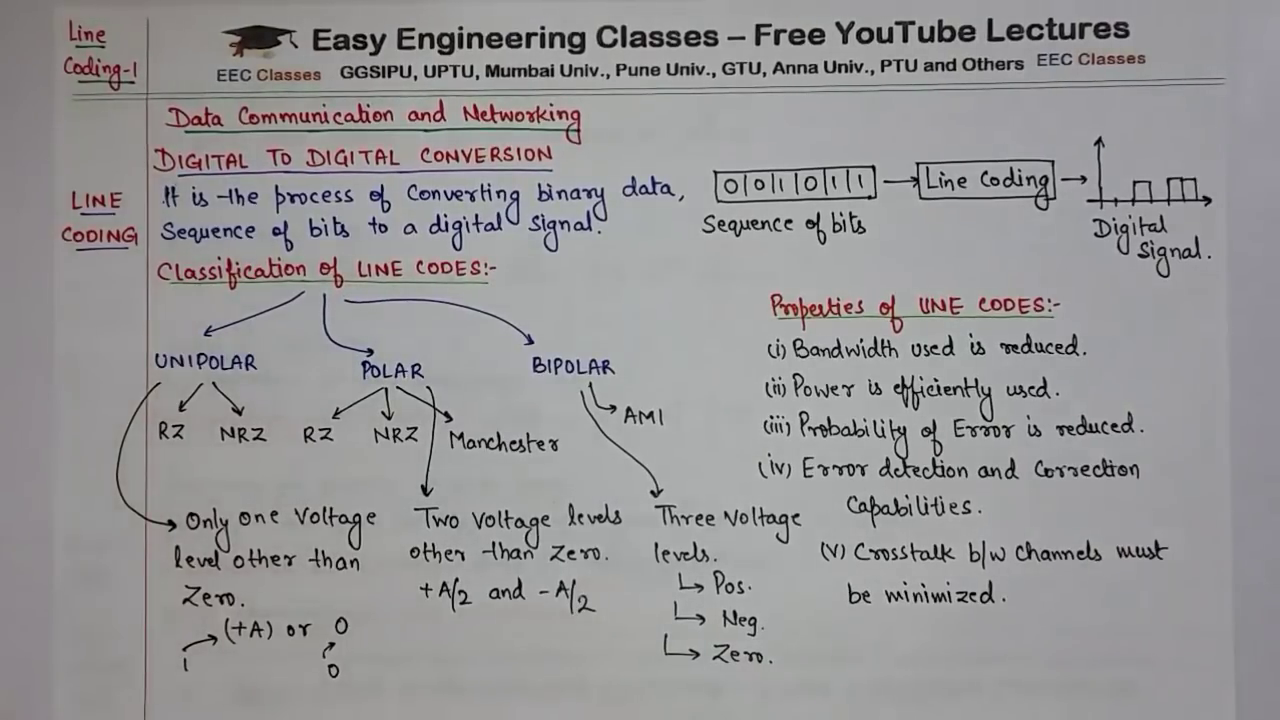 Line
Coding-1
Easy Engineering Classes – Free YouTube Lectures
EEC Classes GGSIPU, UPTU, Mumbai Univ., Pune Univ., GTU, Anna Univ., PTU and Others EEC Classes
Data Communication and Networking
DIGITAL TO DIGITAL CONVERSION
LINE
CODING
It is the process of Converting binary data,
Sequence of bits to a digital signal.
0 0 1 0 1 1
Sequence of bits
Line Coding
Digital
Signal.
Classification of LINE CODES:-
UNIPOLAR
POLAR
BIPOLAR
RZ NRZ
RZ NRZ Manchester
AMI
Only one Voltage
level other than
Zero.
(+A) or 0
1 0
Two Voltage levels
other than Zero.
+A/2 and -A/2
Three Voltage
levels.
Pos.
Neg.
Zero.
Properties of LINE CODES:-
(i) Bandwidth used is reduced.
(ii) Power is efficiently used.
(iii) Probability of Error is reduced.
(iv) Error detection and Correction
Capabilities.
(v) Crosstalk b/w Channels must
be minimized.